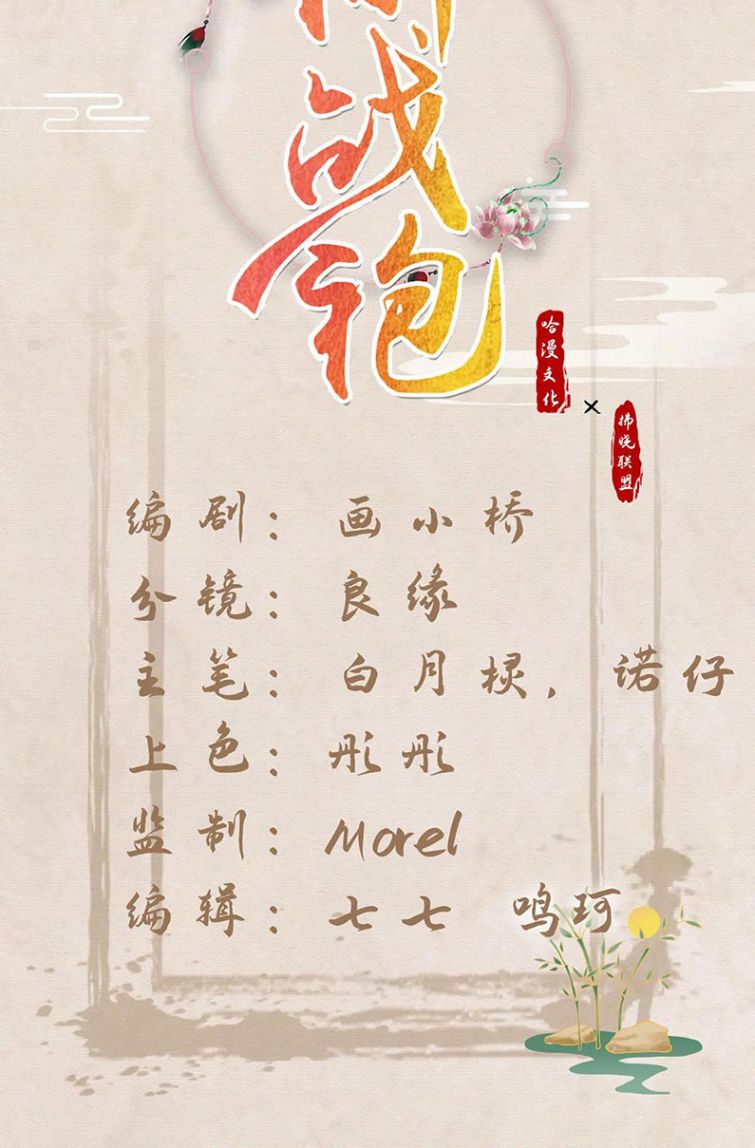 战
袍
哈漫文化
×
拂晓联盟
编剧：画小桥
分镜：良缘
主笔：白月棂，诺仔
上色：彤彤
监制：Morel
编辑：七七 鸣珂